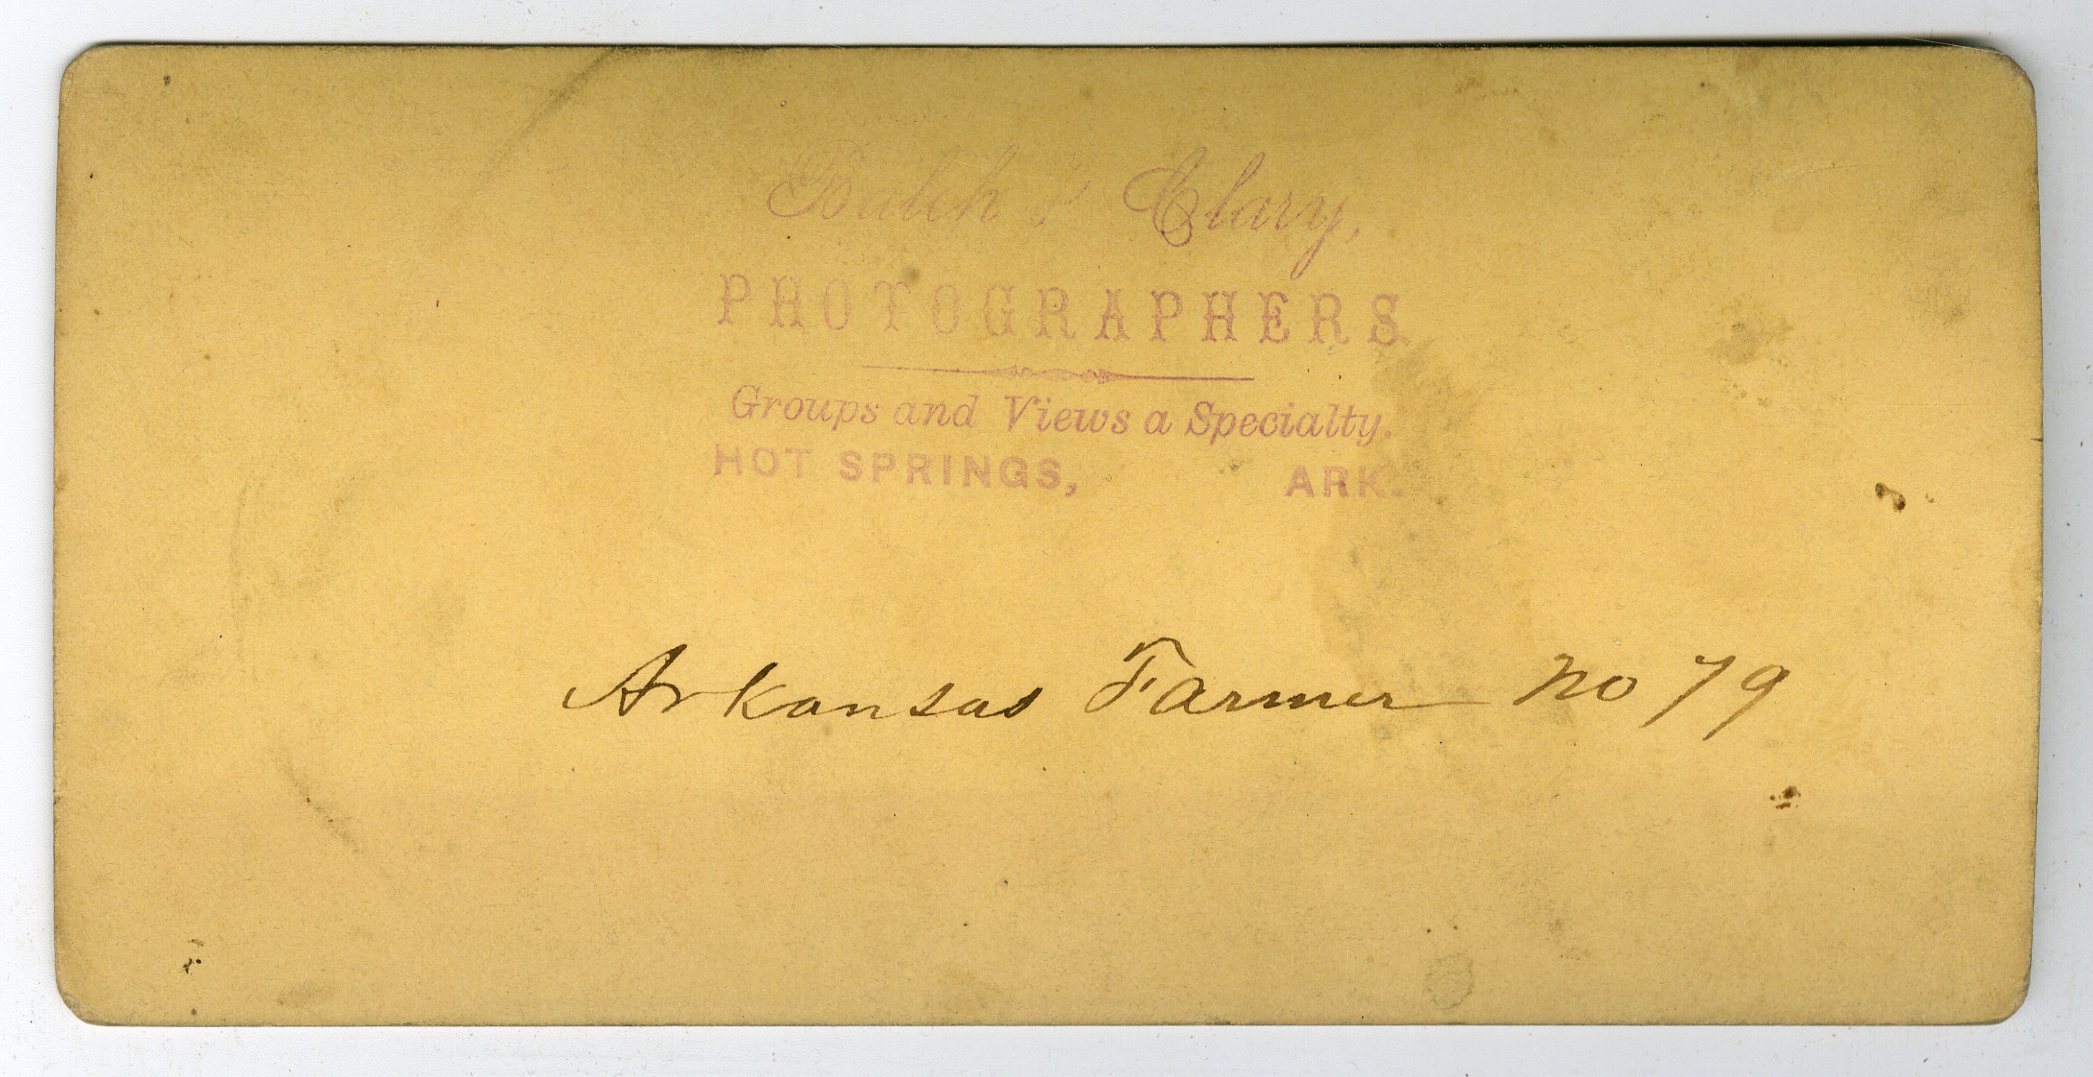 Balch & Clary,
PHOTOGRAPHERS.
Groups and Views a Specialty.
HOT SPRINGS, ARK.
Arkansas Farmer No 79